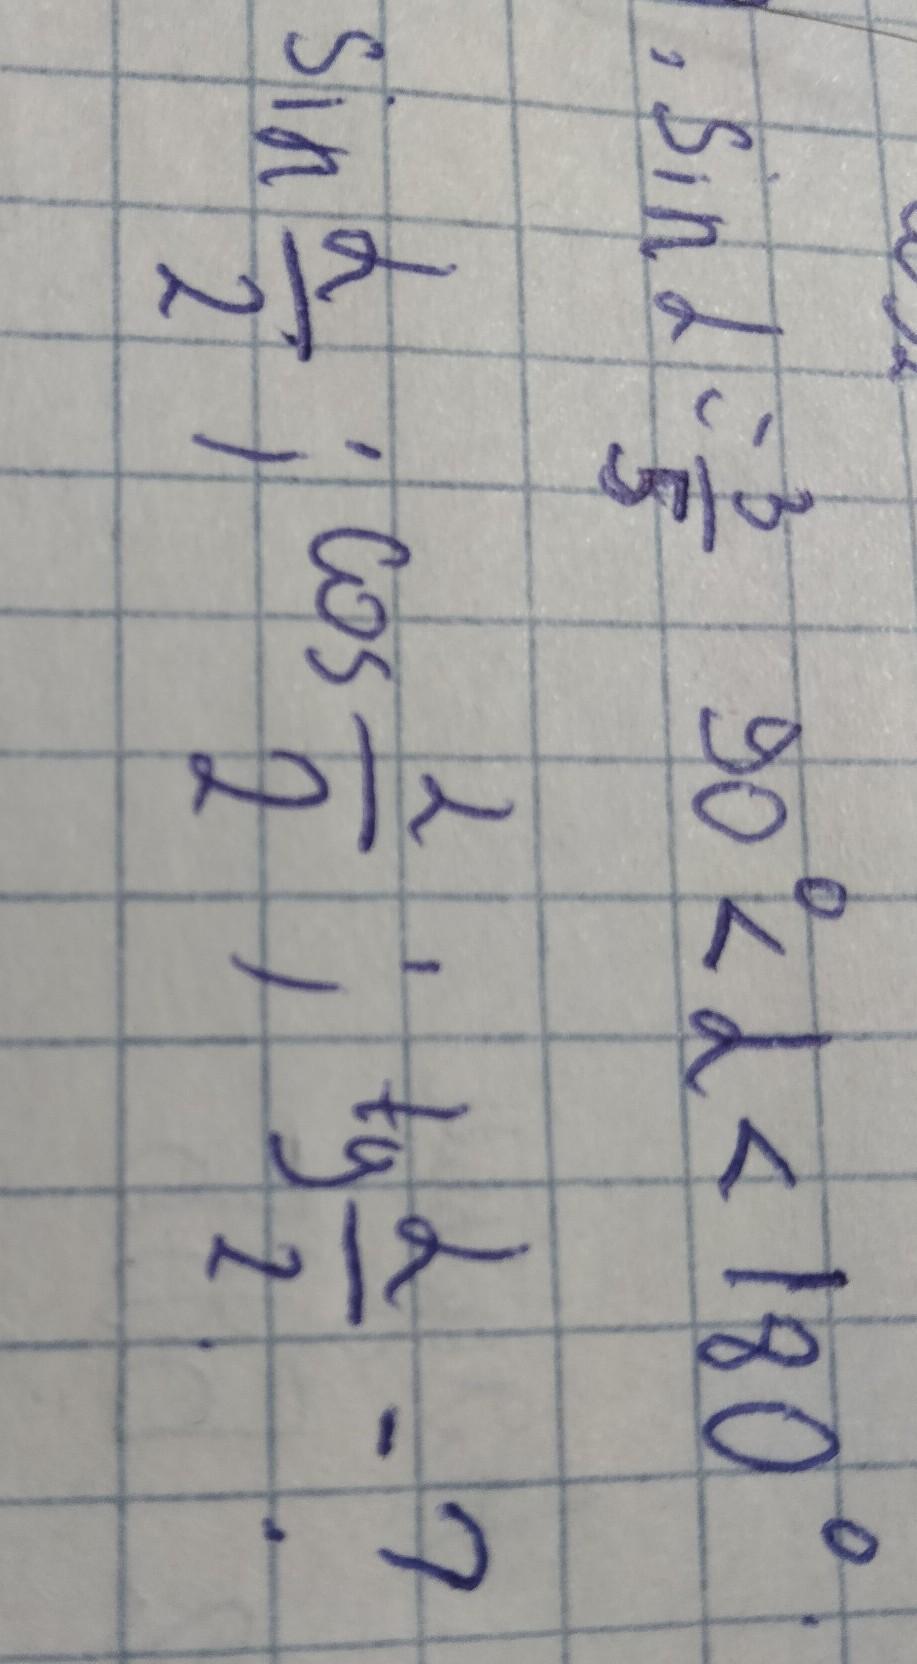 , Sin α = 3/5 90° < α < 180°.
Sin α/2 ; Cos α/2 ; tg α/2 - ?